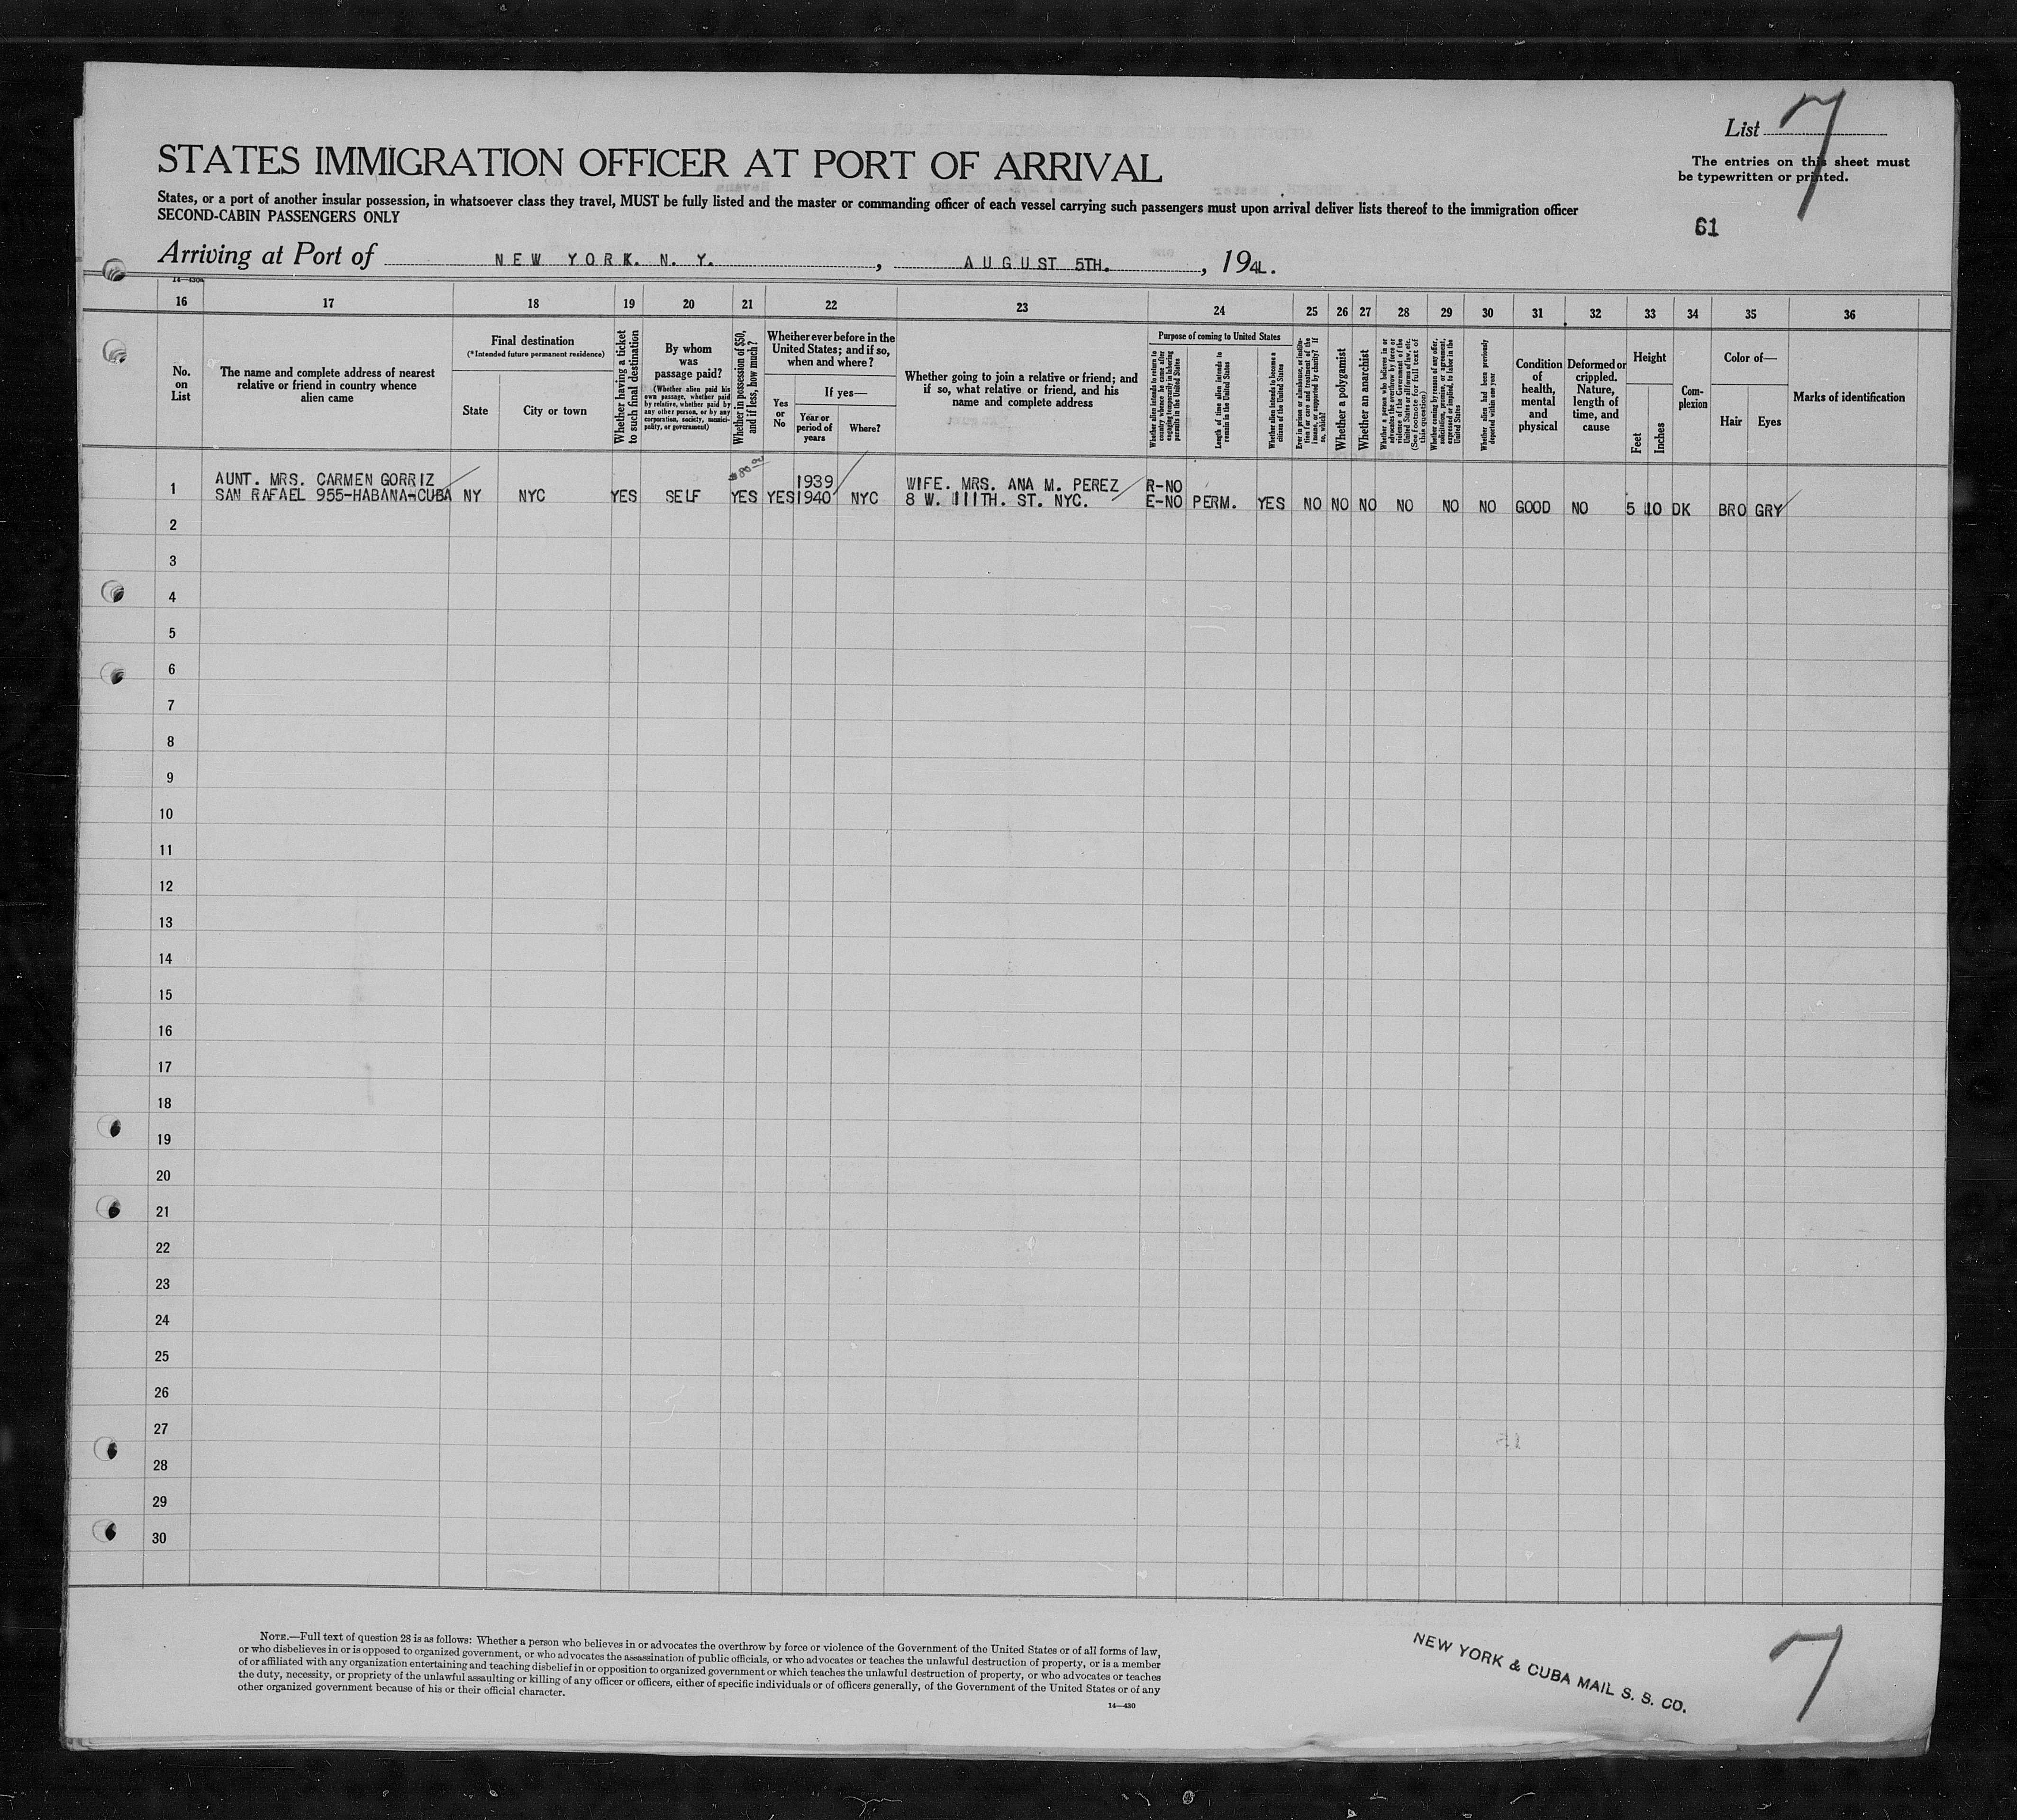 List 7
STATES IMMIGRATION OFFICER AT PORT OF ARRIVAL
The entries on this sheet must
be typewritten or printed.
States, or a port of another insular possession, in whatsoever class they travel, MUST be fully listed and the master or commanding officer of each vessel carrying such passengers must upon arrival deliver lists thereof to the immigration officer
SECOND-CABIN PASSENGERS ONLY
61
Arriving at Port of NEW YORK. N. Y. , AUGUST 5TH. , 1941.
16 17 18 19 20 21 22 23 24 25 26 27 28 29 30 31 32 33 34 35 36
No.
on
List
The name and complete address of nearest
relative or friend in country whence
alien came
Final destination
(*Intended future permanent residence)
State
City or town
Whether having a ticket
to such final destination
By whom
was
passage paid?
(Whether alien paid his
own passage, whether paid
by relative, whether paid by
any other person, or by any
corporation, society, munici-
pality, or government)
Whether in possession of $50,
and if less, how much?
Whether ever before in the
United States; and if so,
when and where?
Yes
or
No
If yes—
Year or
period of
years
Where?
Whether going to join a relative or friend; and
if so, what relative or friend, and his
name and complete address
Purpose of coming to United States
Whether alien intends to return to
country whence he came after
engaging temporarily in laboring
pursuits in the United States
Length of time alien intends to
remain in the United States
Whether alien intends to become a
citizen of the United States
Ever in prison or almshouse, or institu-
tion for care and treatment of the
insane, or supported by charity? If
so, which?
Whether a polygamist
Whether an anarchist
Whether a person who believes in or
advocates the overthrow by force or
violence of the Government of the
United States or all forms of law, etc.
(See footnote for full text of
this question)
Whether coming by reason of any offer,
solicitation, promise, or agreement,
expressed or implied, to labor in the
United States
Whether alien had been previously
deported within one year
Condition
of
health,
mental
and
physical
Deformed or
crippled.
Nature,
length of
time, and
cause
Height
Feet
Inches
Com-
plexion
Color of—
Hair
Eyes
Marks of identification
$80.00
AUNT. MRS. CARMEN GORRIZ 1939 WIFE. MRS. ANA M. PEREZ R-NO
1 SAN RAFAEL 955-HABANA-CUBA NY NYC YES SELF YES YES 1940 NYC 8 W. 111TH. ST. NYC. E-NO PERM. YES NO NO NO NO NO NO GOOD NO 5 10 DK BRO GRY
2
3
4
5
6
7
8
9
10
11
12
13
14
15
16
17
18
19
20
21
22
23
24
25
26
27
28
29
30
NOTE.—Full text of question 28 is as follows: Whether a person who believes in or advocates the overthrow by force or violence of the Government of the United States or of all forms of law,
or who disbelieves in or is opposed to organized government, or who advocates the assassination of public officials, or who advocates or teaches the unlawful destruction of property, or is a member
of or affiliated with any organization entertaining and teaching disbelief in or opposition to organized government or which teaches the unlawful destruction of property, or who advocates or teaches
the duty, necessity, or propriety of the unlawful assaulting or killing of any officer or officers, either of specific individuals or of officers generally, of the Government of the United States or of any
other organized government because of his or their official character.
14—430
NEW YORK & CUBA MAIL S. S. CO.
7